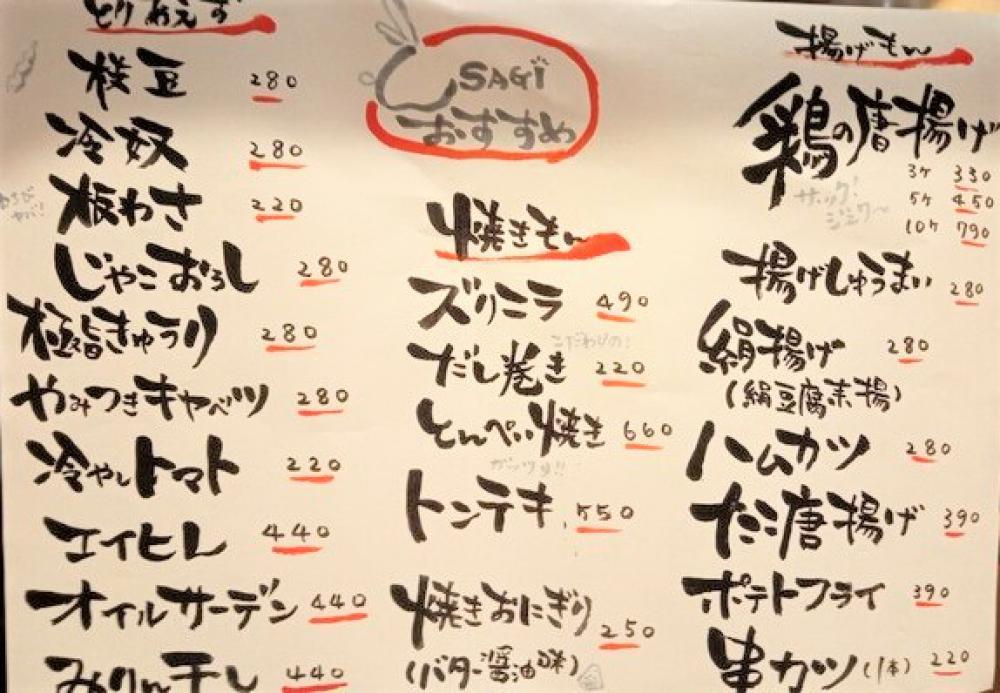 とりあえず
枝豆 280
冷奴 280
板わさ 220
じゃこおろし 280
極旨きゅうり 280
やみつきキャベツ 280
冷やしトマト 220
エイヒレ 440
オイルサーデン 440
みりん干し 440
SAGi
おすすめ
焼きもん
ズリニラ 490
こだわりの!
だし巻き 220
とんぺい焼き 660
ガッツリ!!
トンテキ 550
焼きおにぎり 250
(バター醤油味)
揚げもん
鶏の唐揚げ
3ケ 330
5ケ 450
10ケ 790
サクッ!
ジュワ〜
揚げしゅうまい 280
絹揚げ 280
(絹豆腐素揚)
ハムカツ 280
たこ唐揚げ 390
ポテトフライ 390
串カツ(1本) 220